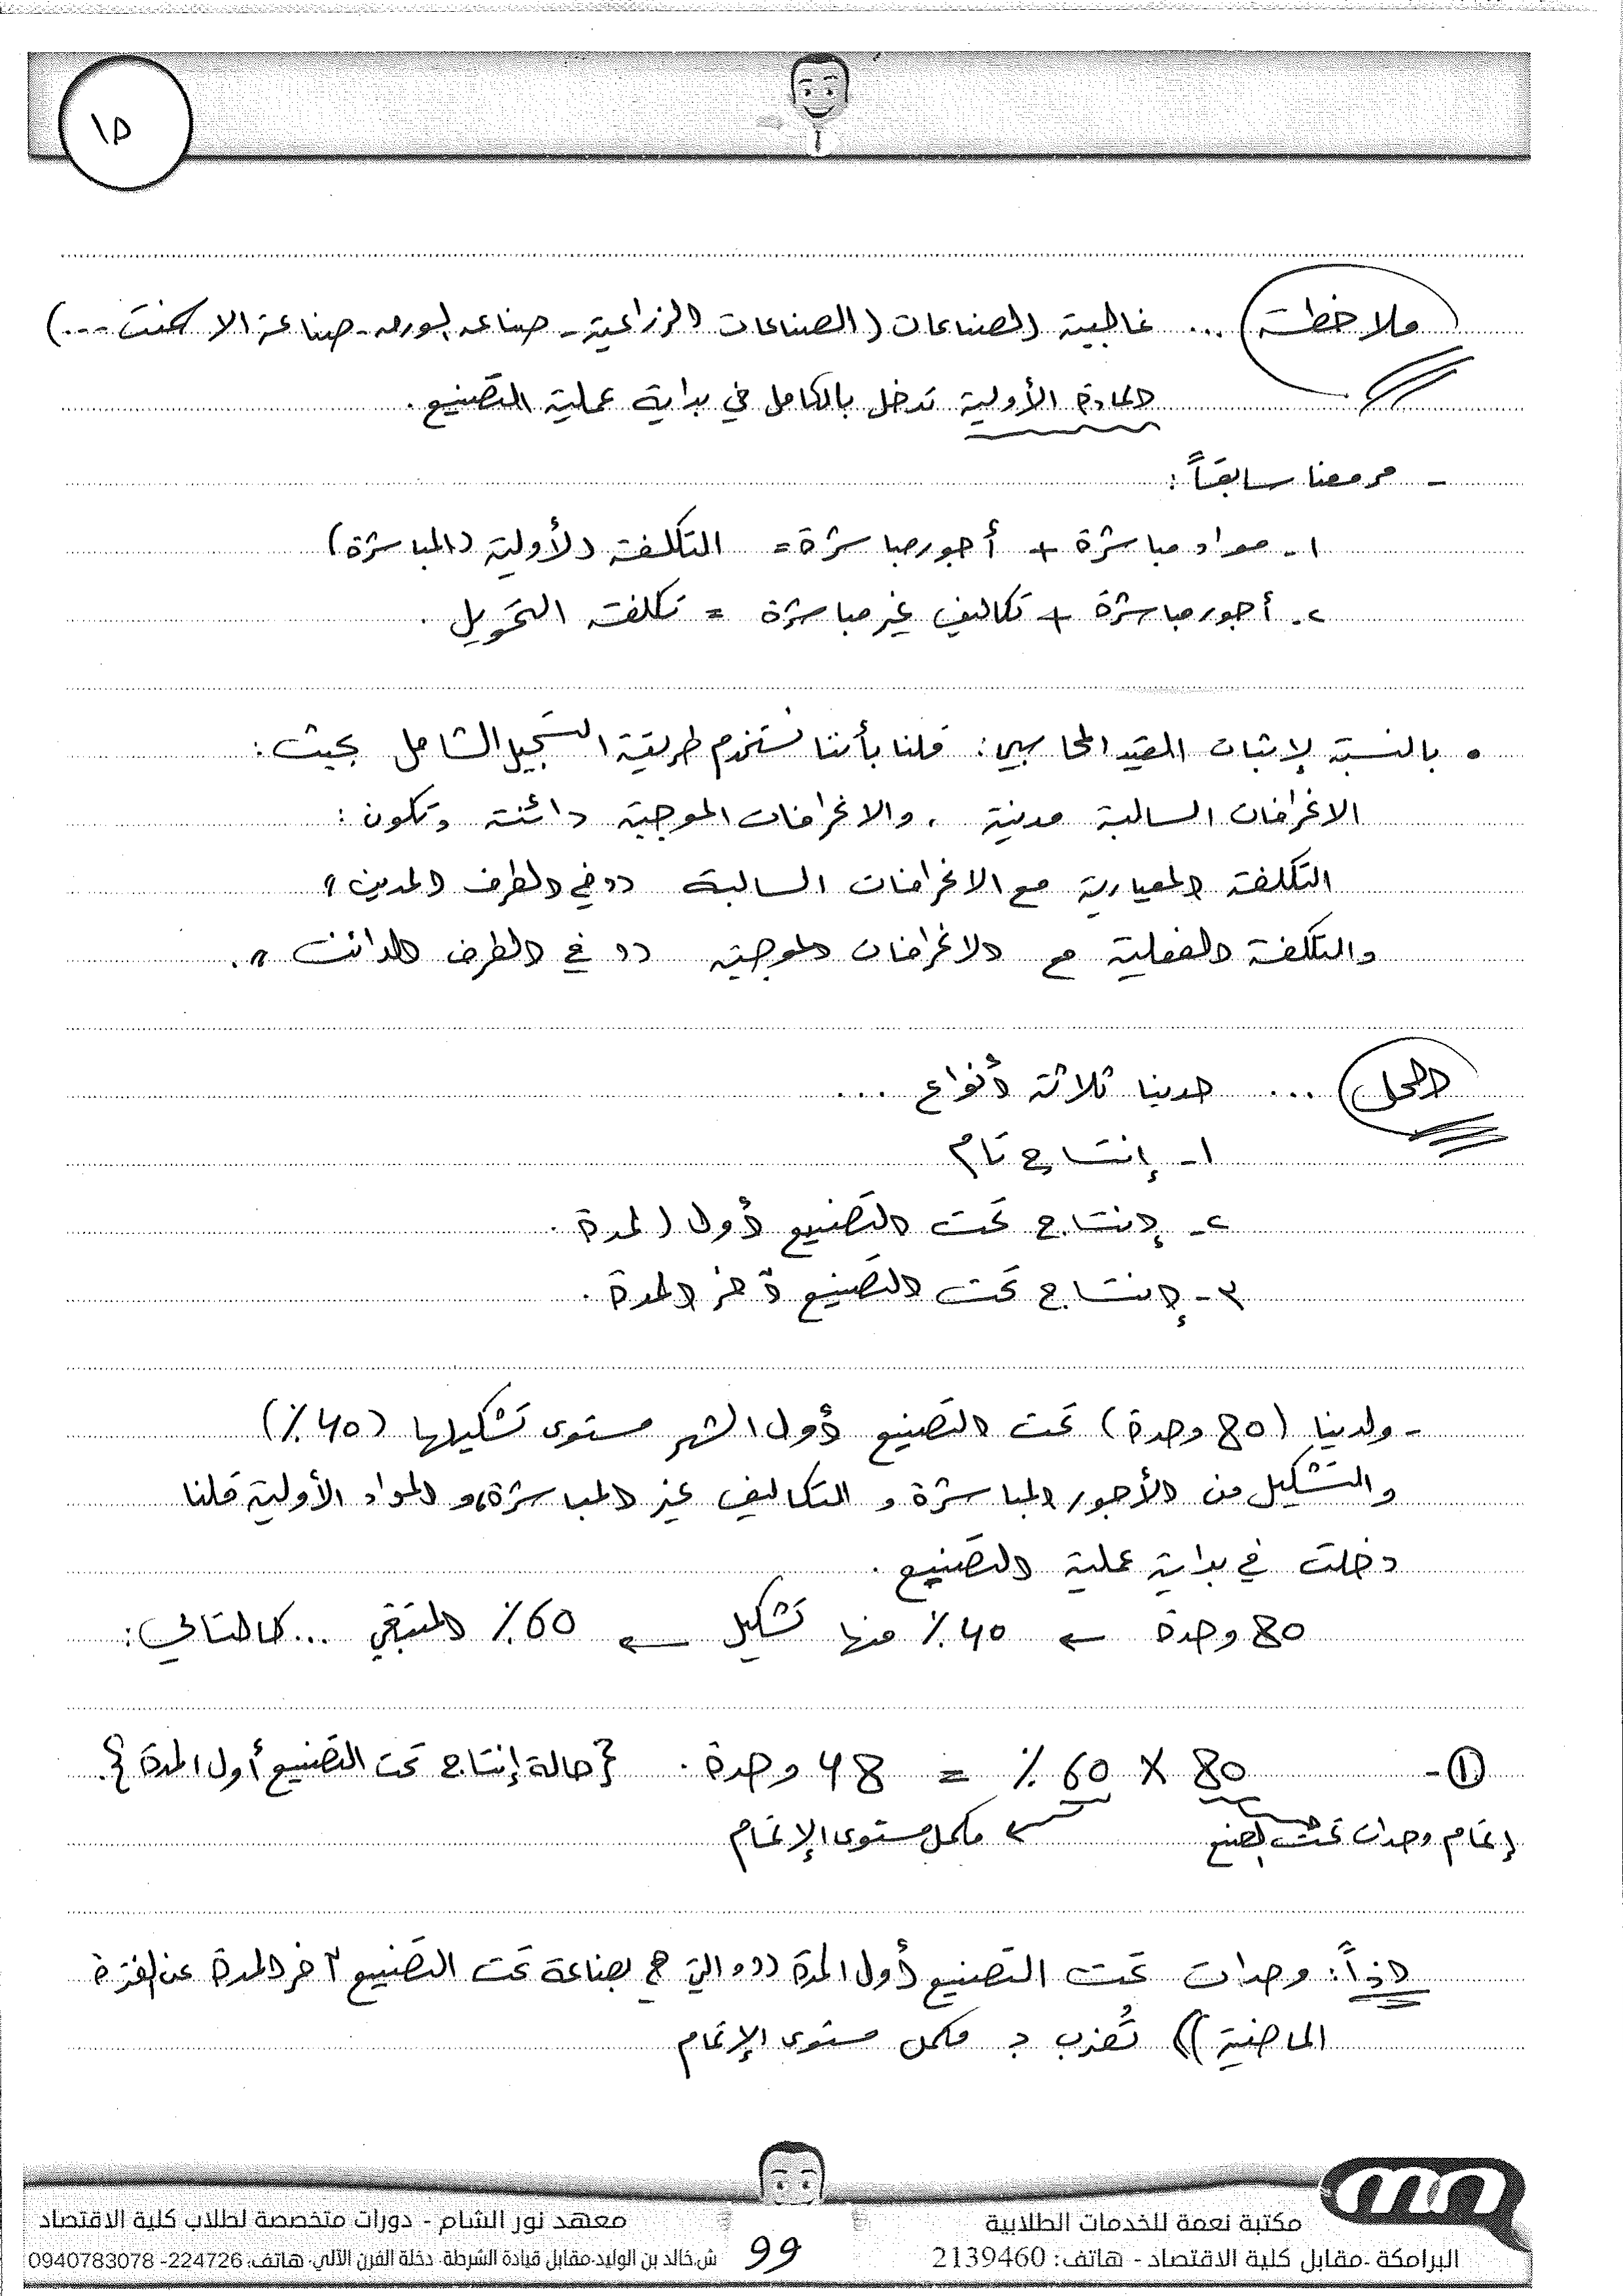 ١٥
ملاحظة ... غالبية الصناعات (الصناعات الزراعية - صناعة الورق - صناعة الاسمنت ...)
المادة الأولية تدخل بالكامل في بداية عملية التصنيع .
- مر معنا سابقاً :
١- مواد مباشرة + أجور مباشرة = التكلفة الأولية (المباشرة)
٢- أجور مباشرة + تكاليف غير مباشرة = تكلفة التحويل .
• بالنسبة لإثبات القيد المحاسبي : قلنا بأننا نستخدم طريقة التسجيل الشامل بحيث :
الانحرافات السالبة مدينة ، والانحرافات الموجبة دائنة وتكون :
التكلفة المعيارية مع الانحرافات السالبة "في الطرف المدين"
والتكلفة الفعلية مع الانحرافات الموجبة "في الطرف الدائن" .
الحل ... لدينا ثلاثة أنواع ...
١- إنتاج تام
٢- إنتاج تحت التصنيع أول المدة .
٣- إنتاج تحت التصنيع آخر المدة .
- ولدينا (80 وحدة) تحت التصنيع أول الشهر مستوى تشكيلها (40٪)
والتشكيل من الأجور المباشرة و التكاليف غير المباشرة، و المواد الأولية قلنا
دخلت في بداية عملية التصنيع .
80 وحدة ← 40٪ منها تشكيل ← 60٪ المتبقي ... كالتالي :
①- 80 × 60٪ = 48 وحدة . {حالة إنتاج تحت التصنيع أول المدة} .
إتمام وحدات تحت الصنع ← مكمل مستوى الإتمام
إذاً : وحدات تحت التصنيع أول المدة ((و التي هي بضاعة تحت التصنيع آخر المدة عن الفترة
الماضية)) تُضرب بـ مكمل مستوى الإتمام
مكتبة نعمة للخدمات الطلابية
البرامكة - مقابل كلية الاقتصاد - هاتف: 2139460
99
معهد نور الشام - دورات متخصصة لطلاب كلية الاقتصاد
ش.خالد بن الوليد-مقابل قيادة الشرطة- دخلة الفرن الآلي- هاتف: 224726- 0940783078